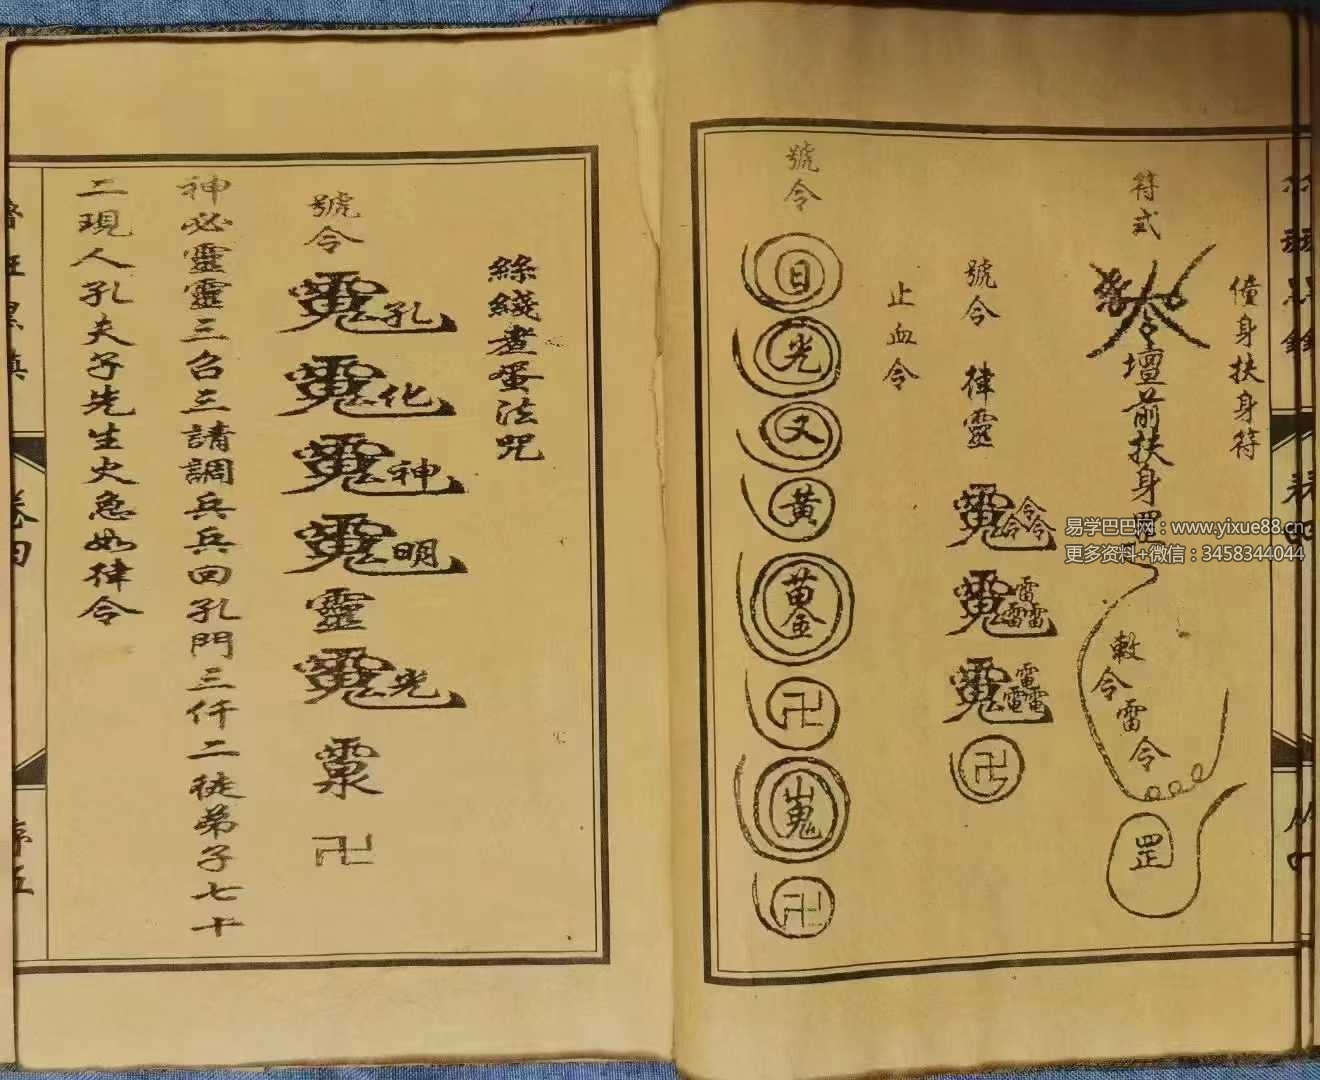 僮身扶身符
符式
令壇前扶身罡
敕令雷令
罡
號令 律靈
令令令
雷雷雷
電電電
卍
止血令
號令
日
光
又
黃
黃金
卍
嵬
卍
絲綫煮蛋法咒
號令
孔
化
神
明
靈
光
卍
神必靈靈三召三請調兵兵回孔門三仟二徒弟子七十
二現人孔夫子先生火急如律令
卷四
易学巴巴网：www.yixue88.cn
更多资料+微信：3458344044